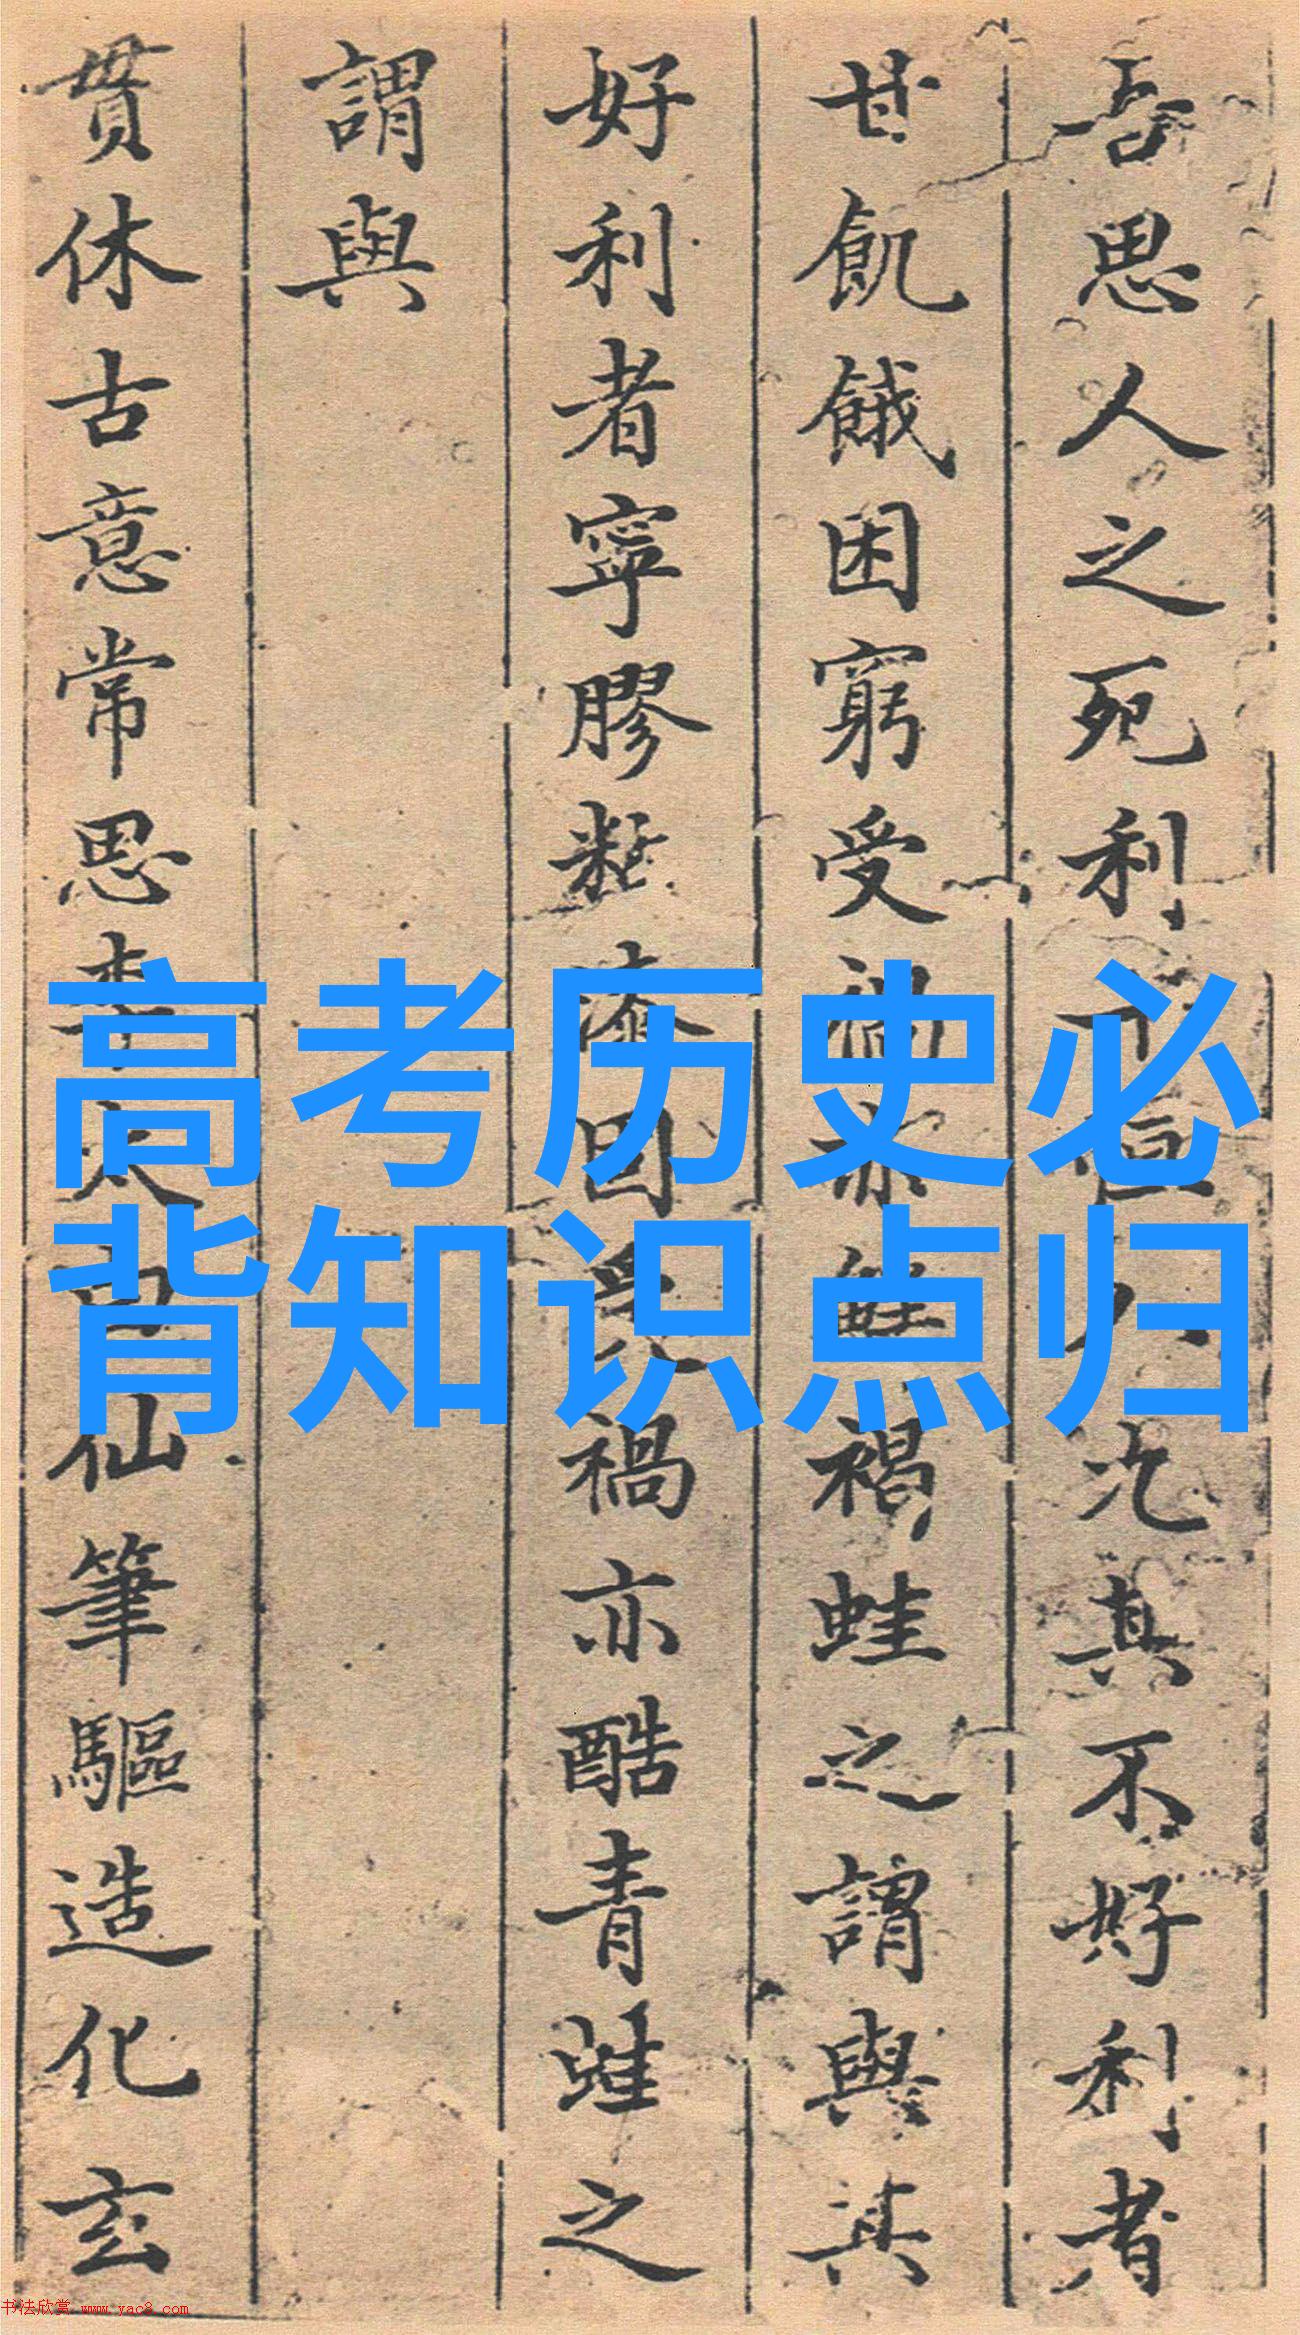 高考历史必
背知识点归
吾思人之死利其不好利者
甘飢餓困窮受禍亦鮮褐蛙之謂與其
好利者寧膠漆固受禍亦酷青蛙之
謂與
貫休古意常思李太白仙筆驅造化玄
书法欣赏 www.yac8.com